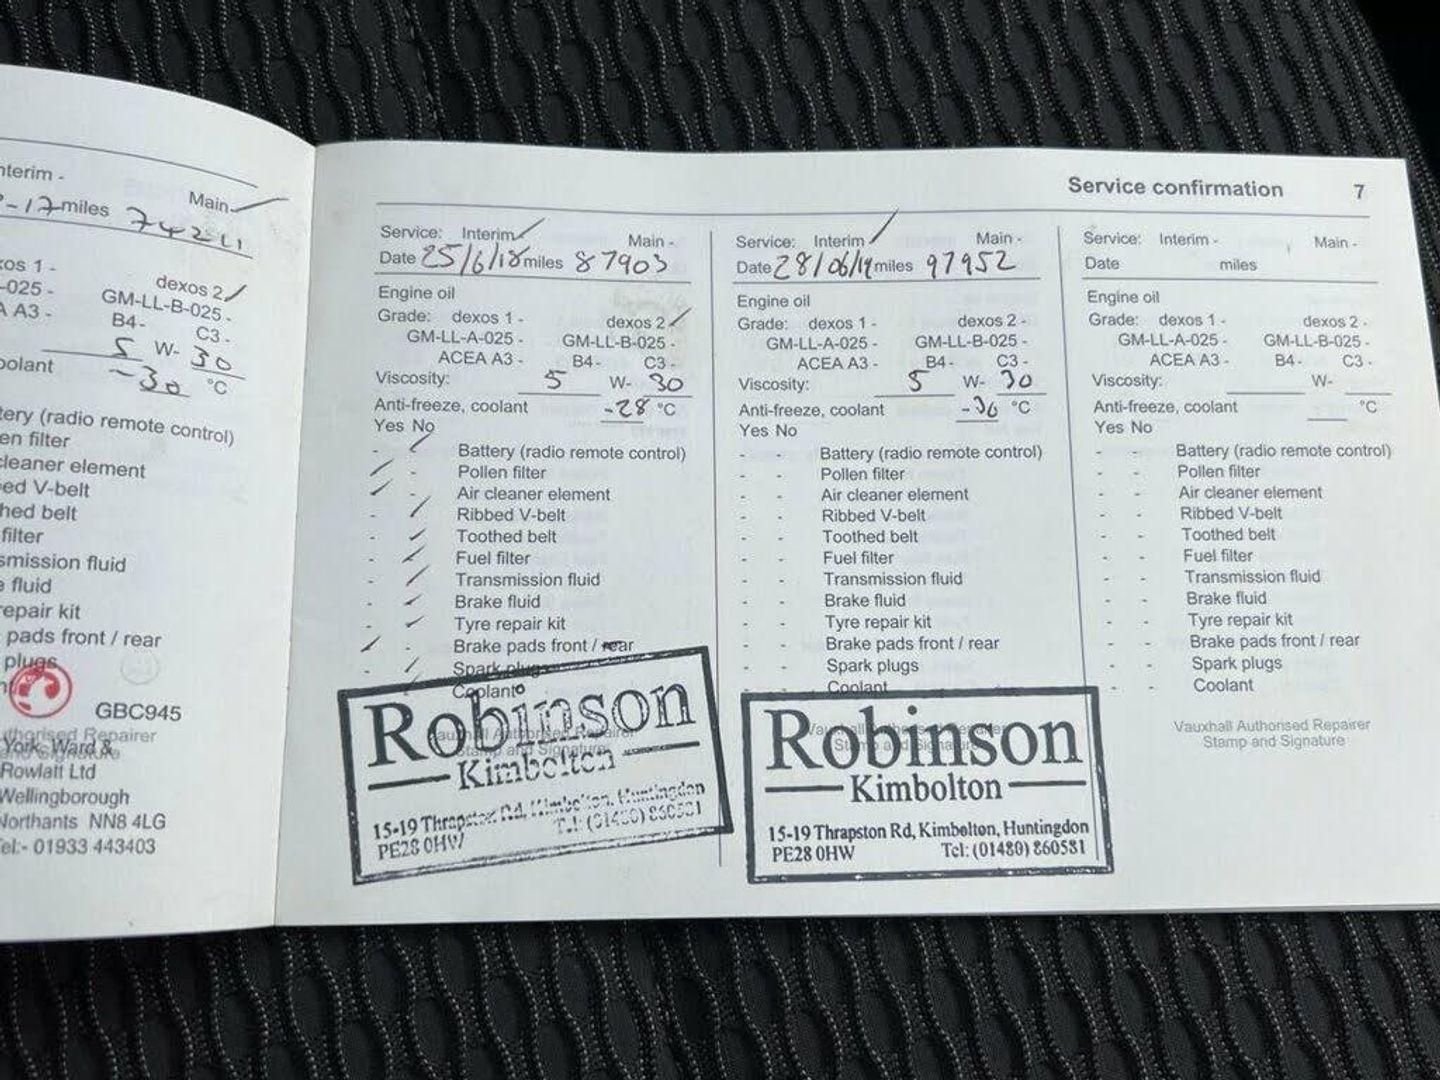 nterim -
Main-
-17 miles 74211
os 1 -
dexos 2
-025 -
GM-LL-B-025 -
A A3 -
B4-
C3 -
5 W- 30
oolant
-30 °C
tery (radio remote control)
en filter
cleaner element
ed V-belt
hed belt
filter
smission fluid
e fluid
repair kit
pads front / rear
plugs
GBC945
thorised Repairer
York, Ward &
Rowlatt Ltd
Wellingborough
Northants NN8 4LG
Tel:- 01933 443403
Service confirmation 7
Service: Interim Main -
Date 25/6/18 miles 87903
Engine oil
Grade: dexos 1 - dexos 2
GM-LL-A-025 - GM-LL-B-025 -
ACEA A3 - B4- C3 -
Viscosity: 5 W- 30
Anti-freeze, coolant -28 °C
Yes No
Battery (radio remote control)
Pollen filter
Air cleaner element
Ribbed V-belt
Toothed belt
Fuel filter
Transmission fluid
Brake fluid
Tyre repair kit
Brake pads front / rear
Spark plugs
Coolant
Robinson
Kimbolton
15-19 Thrapston Rd, Kimbolton, Huntingdon
PE28 0HW Tel: (01480) 860581
Service: Interim Main -
Date 28/06/19 miles 97952
Engine oil
Grade: dexos 1 - dexos 2 -
GM-LL-A-025 - GM-LL-B-025 -
ACEA A3 - B4- C3 -
Viscosity: 5 W- 30
Anti-freeze, coolant -36 °C
Yes No
- - Battery (radio remote control)
- - Pollen filter
- - Air cleaner element
- - Ribbed V-belt
- - Toothed belt
- - Fuel filter
- - Transmission fluid
- - Brake fluid
- - Tyre repair kit
- - Brake pads front / rear
- - Spark plugs
Coolant
Robinson
Kimbolton
15-19 Thrapston Rd, Kimbolton, Huntingdon
PE28 0HW Tel: (01480) 860581
Service: Interim - Main -
Date miles
Engine oil
Grade: dexos 1 - dexos 2 -
GM-LL-A-025 - GM-LL-B-025 -
ACEA A3 - B4- C3 -
Viscosity: W-
Anti-freeze, coolant °C
Yes No
- - Battery (radio remote control)
- - Pollen filter
- - Air cleaner element
- - Ribbed V-belt
- - Toothed belt
- - Fuel filter
- - Transmission fluid
- - Brake fluid
- - Tyre repair kit
- - Brake pads front / rear
- - Spark plugs
- - Coolant
Vauxhall Authorised Repairer
Stamp and Signature